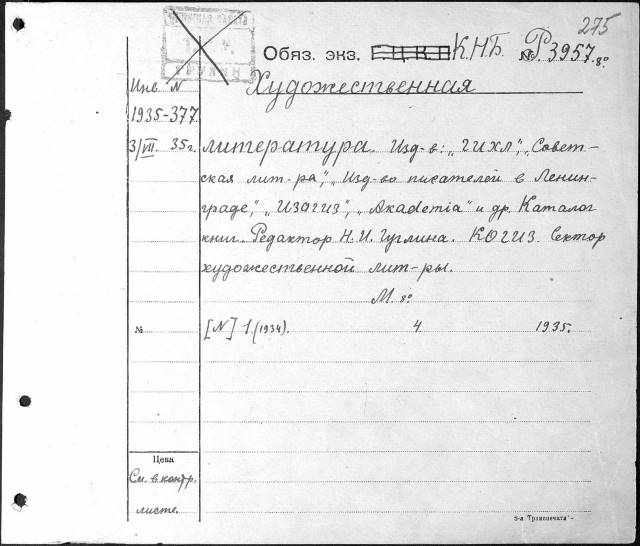 275
Обяз. экз. Г.Ц.К.П К.Н.Б. № Р3957.8°
Инв. N
Художественная
1935-377
3/VII. 35г.
литература. Изд-в: „ГИХЛ", „Совет-
ская лит-ра", „Изд-во писателей в Ленин-
граде", „ИЗОГИЗ", „Akademia" и др. Каталог
книг. Редактор Н. И. Гуглина. КОГИЗ. Сектор
художественной лит-ры.
М. 8°
№ [N] 1.(1934). 4. 1935.
Цена
См. в контр.
листе.
3-я "Транспечать"-